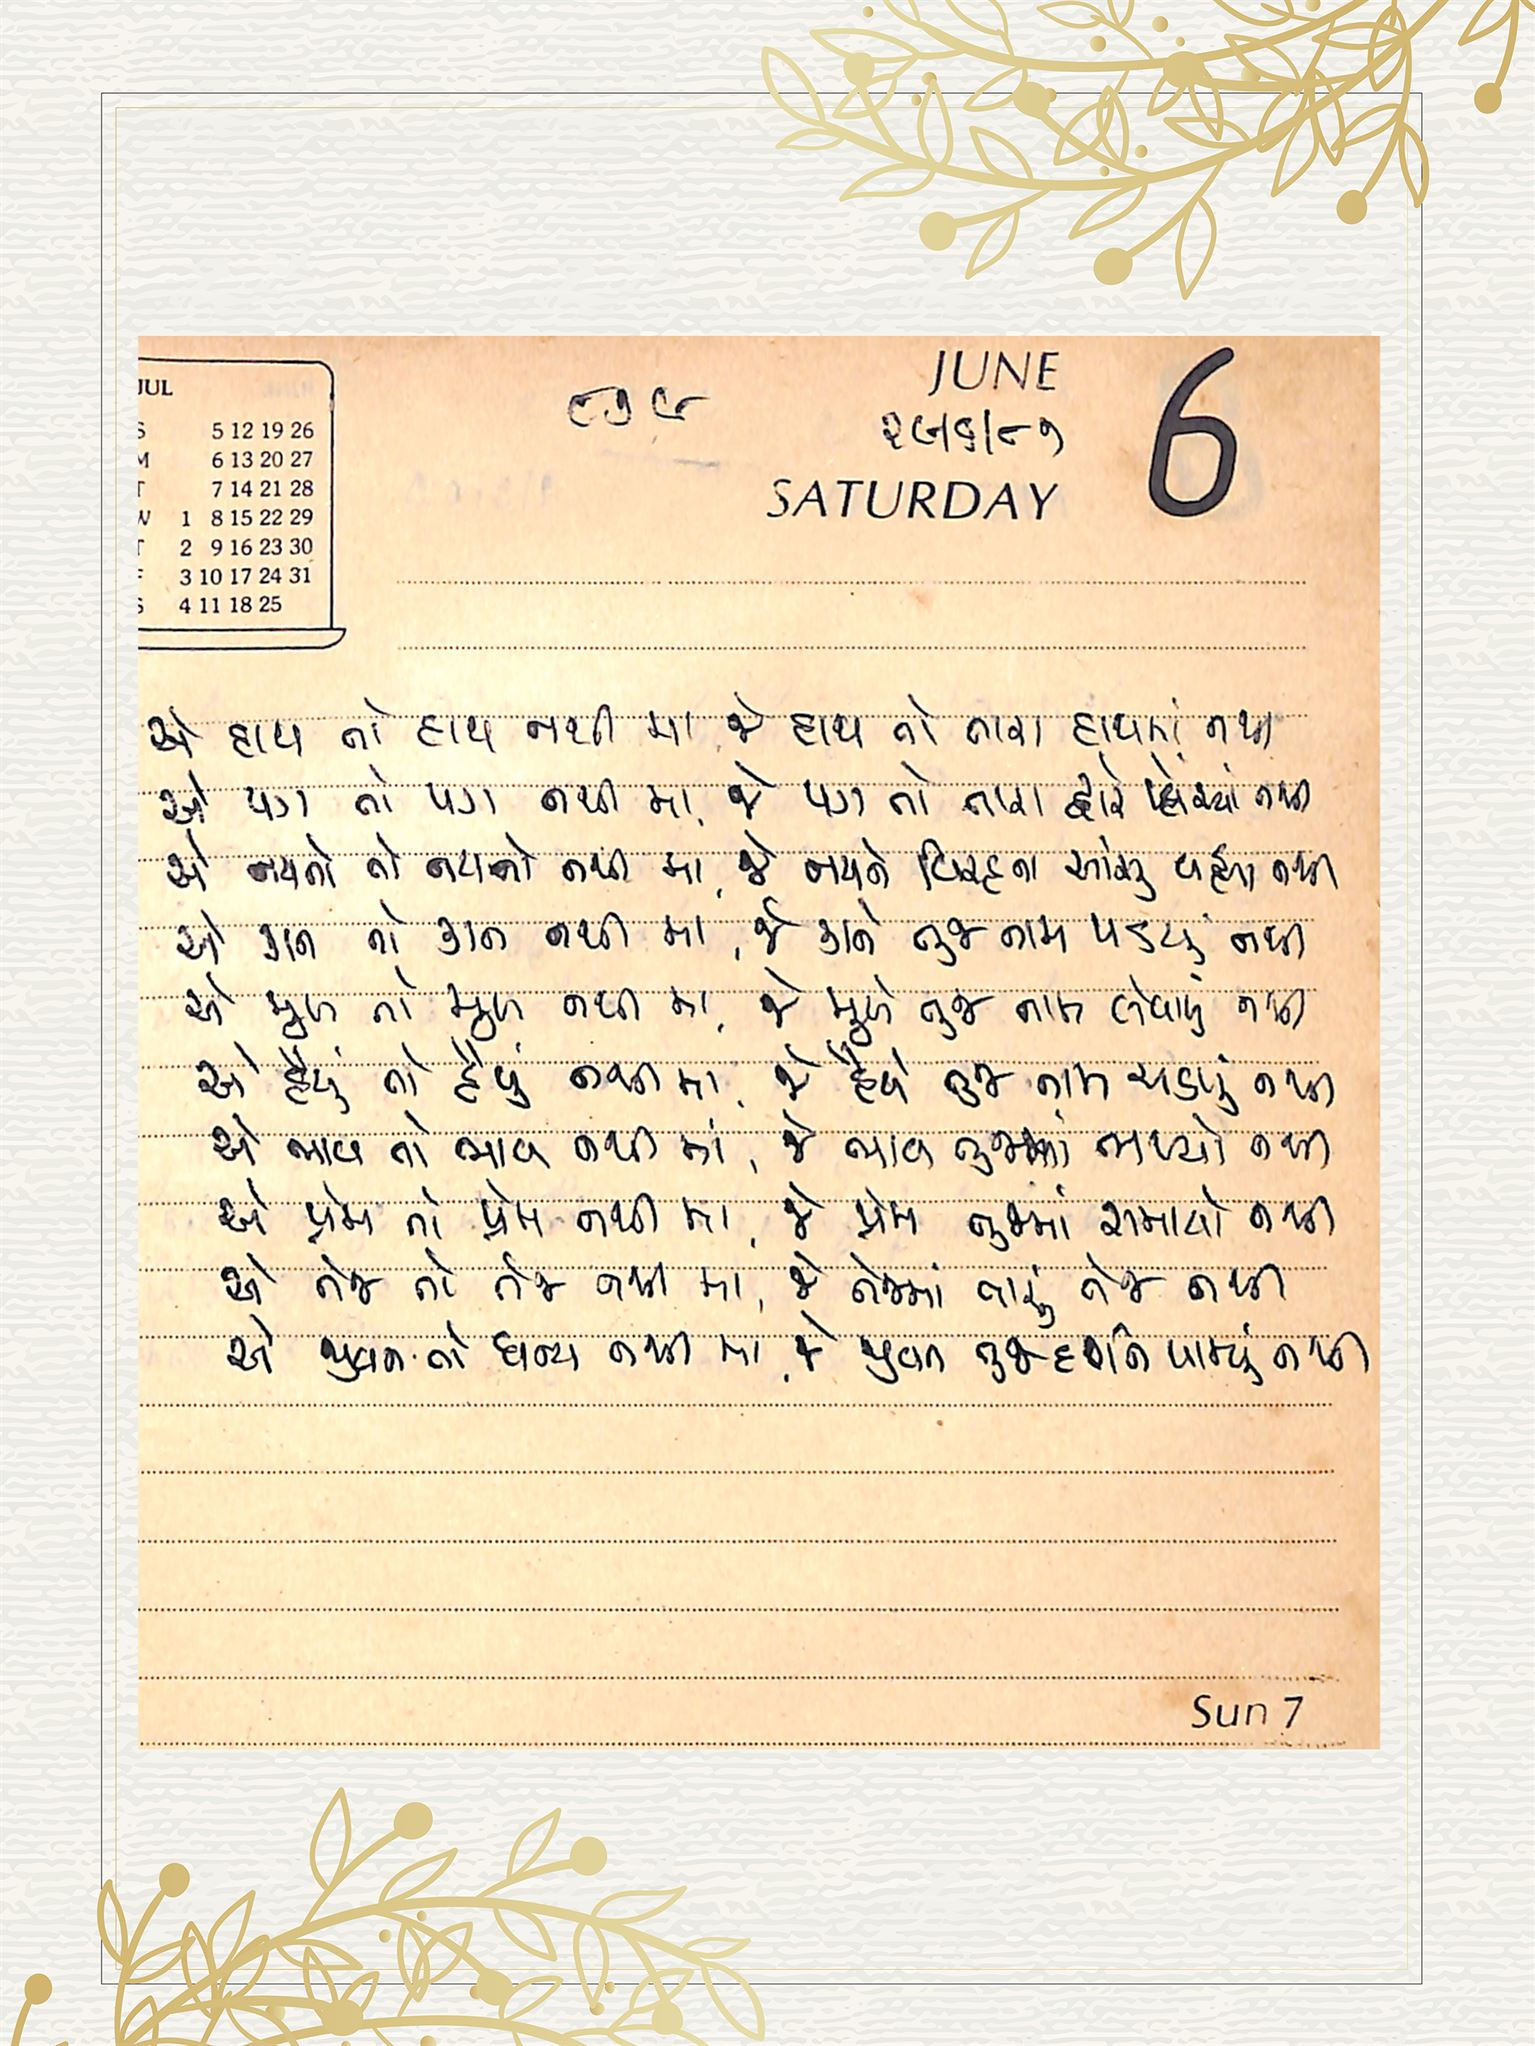 JUL
૯૭૯
JUNE
6
૨૯/૬/૮૧
SATURDAY
S 5 12 19 26
M 6 13 20 27
T 7 14 21 28
W 1 8 15 22 29
T 2 9 16 23 30
F 3 10 17 24 31
S 4 11 18 25
એ હાથ તો હાથ નથી મા, જે હાથ તો તારા હાથમાં નથી
એ પગ તો પગ નથી મા, જે પગ તો તારા દ્વારે પહોંચ્યાં નથી
એ નયનો તો નયનો નથી મા, જે નયને વિરહના આંસુ વહ્યા નથી
એ કાન તો કાન નથી મા, જે કાને તુજ નામ પડ્યું નથી
એ મુખ તો મુખ નથી મા, જે મુખે તુજ નામ લેવાયું નથી
એ હૈયું તો હૈયું નથી મા, જે હૈયે તુજ નામ ચડ્યું નથી
એ ભાવ તો ભાવ નથી માં, જે ભાવ તુજમાં ભળ્યો નથી
એ પ્રેમ તો પ્રેમ નથી મા, જે પ્રેમ તુજમાં સમાયો નથી
એ તેજ તો તેજ નથી મા, જે તેજમાં તારું તેજ નથી
એ જીવન તો ધન્ય નથી મા, જે જીવન તુજ દર્શન પામ્યું નથી
Sun 7